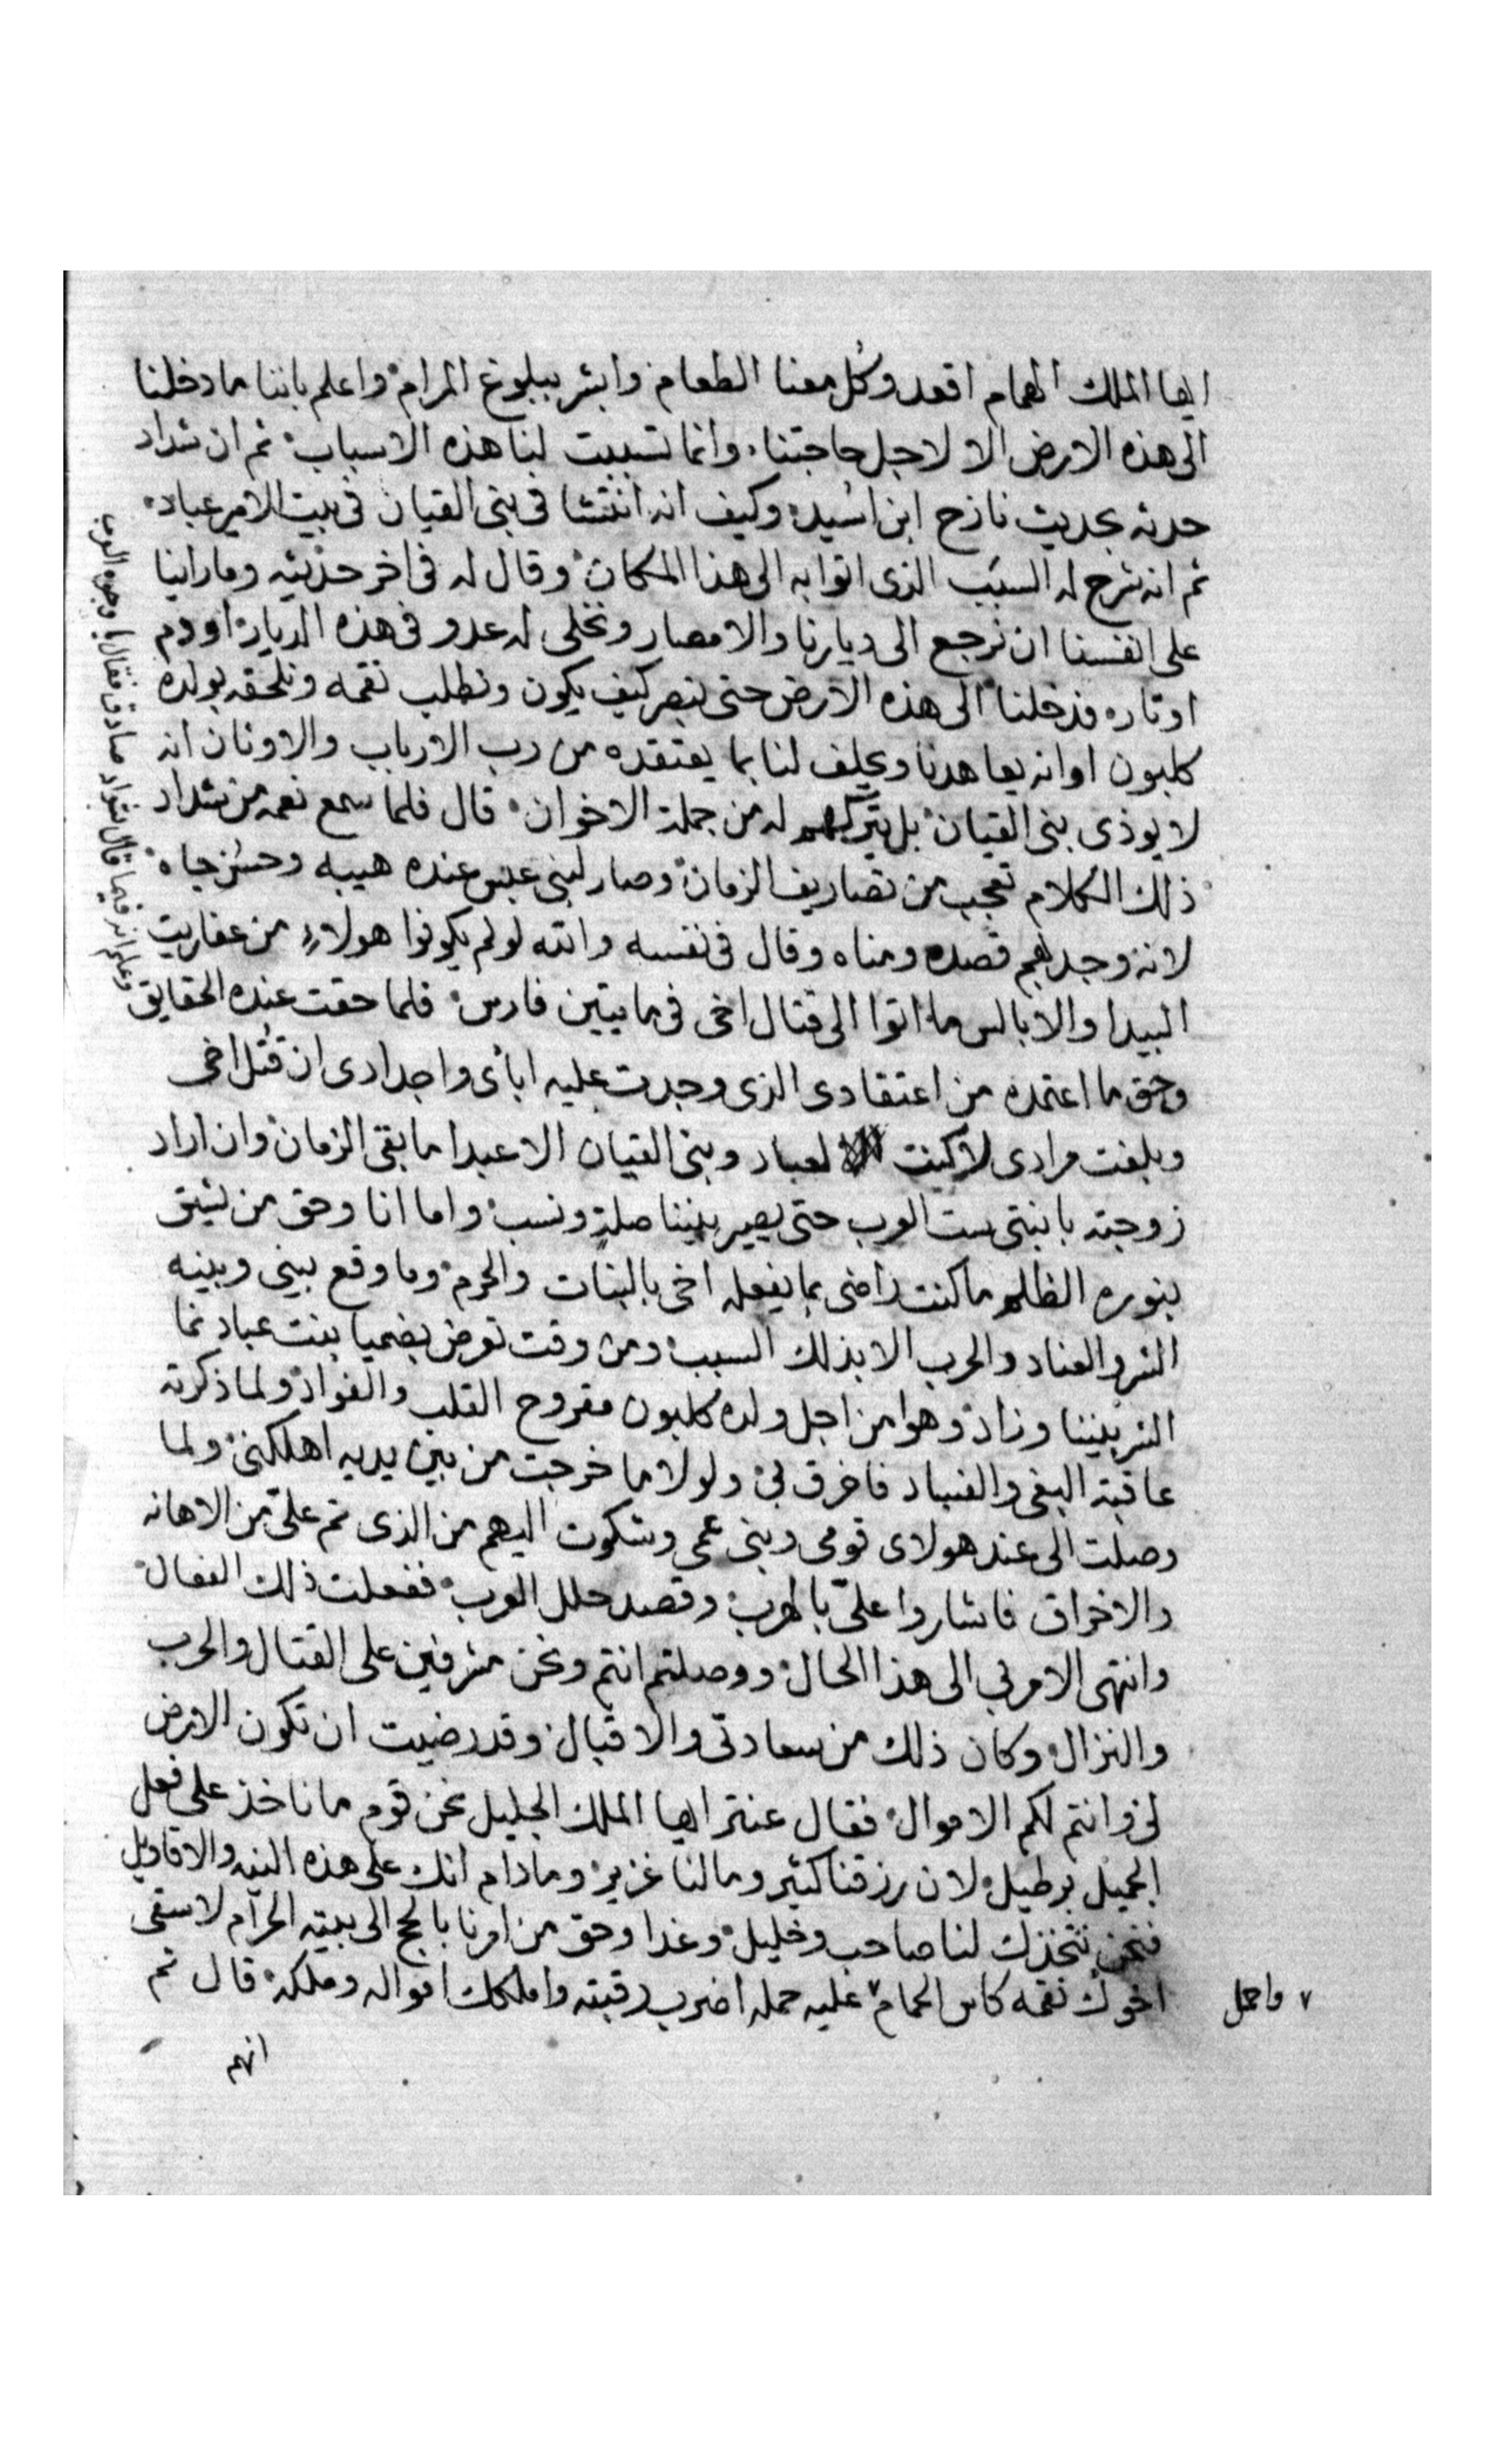 ايها الملك الهمام اقعد وكُل معنا الطعام وابشر ببلوغ المرام واعلم باننا ما دخلنا
الى هذه الارض الا لاجل حاجتنا وانما تسببت لنا هذه الاسباب ثم ان شداد
حدثه بحديث نازح ابن اسُيد وكيف انه انتشا فى بنى القيان فى بيت الامير عباد
ثم انه شرح له السبب الذى اتوا به الى هذا المكان وقال له فى اخر حديثه وما راينا
على انفسنا ان نرجع الى ديارنا والامصار ونخلى له عدو فى هذه الديار او دم
او تاره فدخلنا الى هذه الارض حتى نبصر كيف يكون ونطلب نقمه ونلحقه بولده
كلبون او انه يعاهدنا ويحلف لنا بما يعتقده من رب الارباب والاوثان انه
لا يوذى بنى القيان بل يتركهم له من جملة الاخوان قال فلما سمع نعمه من شداد
ذلك الكلام تعجب من تصاريف الزمان وصار لبنى عبس عنده هيبه وحسُن جاه
لانه وجدهم قصده ومناه وقال فى نفسه والله لولم يكونوا هولاء من عفاريت
البيدا والابالس ما اتوا الى قتال اخى فى مايتين فارس فلما حقت عنده الحقايق
وعلم انه فيما قال شداد صادق فقال يا وجوه العرب
وحق ما اعتمده من اعتقادى الذى وجدت عليه ابائى واجدادى ان قتُل اخى
وبلغت مرادى لاكنت لعباد وبنى القيان الا عبدا ما بقى الزمان وان اراد
زوجته بابنتى ست العرب حتى يصير بيننا صلة ونسب واما انا وحق من يشق
بنوره الظلم ما كنت راضى بما يفعله اخى بالبنات والحرم وما وقع بينى وبينه
الشر والعناد والحرب الا بذلك السبب ومن وقت تعرض بضميا بنت عباد نما
الشر بيننا وزاد وهوا من اجل ولده كلبون مقروح القلب والفواد ولما ذكرته
عاقبة البغى والفساد فاخرق بى ولولا ما خرجت من بين يديه اهلكنى ولما
وصلت الى عند هولاى قومى وبنى عمى وشكوت اليهم من الذى تم علىّ من الاهانه
والاخراق فاشاروا علىّ بالهرب وقصد حلل العرب ففعلت ذلك الفعال
وانتهى الامر بي الى هذا الحال ووصلتم انتم ونحن مشرفين على القتال والحرب
والنزال وكان ذلك من سعادتى والاقبال وقد رضيت ان تكون الارض
لى وانتم لكم الاموال فقال عنتر ايها الملك الجليل نحن قوم ما ناخذ على فعل
الجميل برطيل لان رزقنا كثير ومالنا غزير وما دام انك على هذه النيه والاقاويل
فنحن نتخذك لنا صاحب وخليل وغدا وحق من امرنا بالحج الى بيته الحرام لاسقى
اخوك نقمه كاس الحمام ٧ عليه حمله اضرب رقبته واملكك امواله وملكه قال ثم
٧ واحمل
انهم